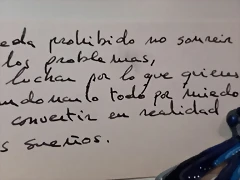 eda prohibido no sonreir
los problemas,
luchar por lo que quieres
ndonarlo todo por miedo
convertir en realidad
s sueños.